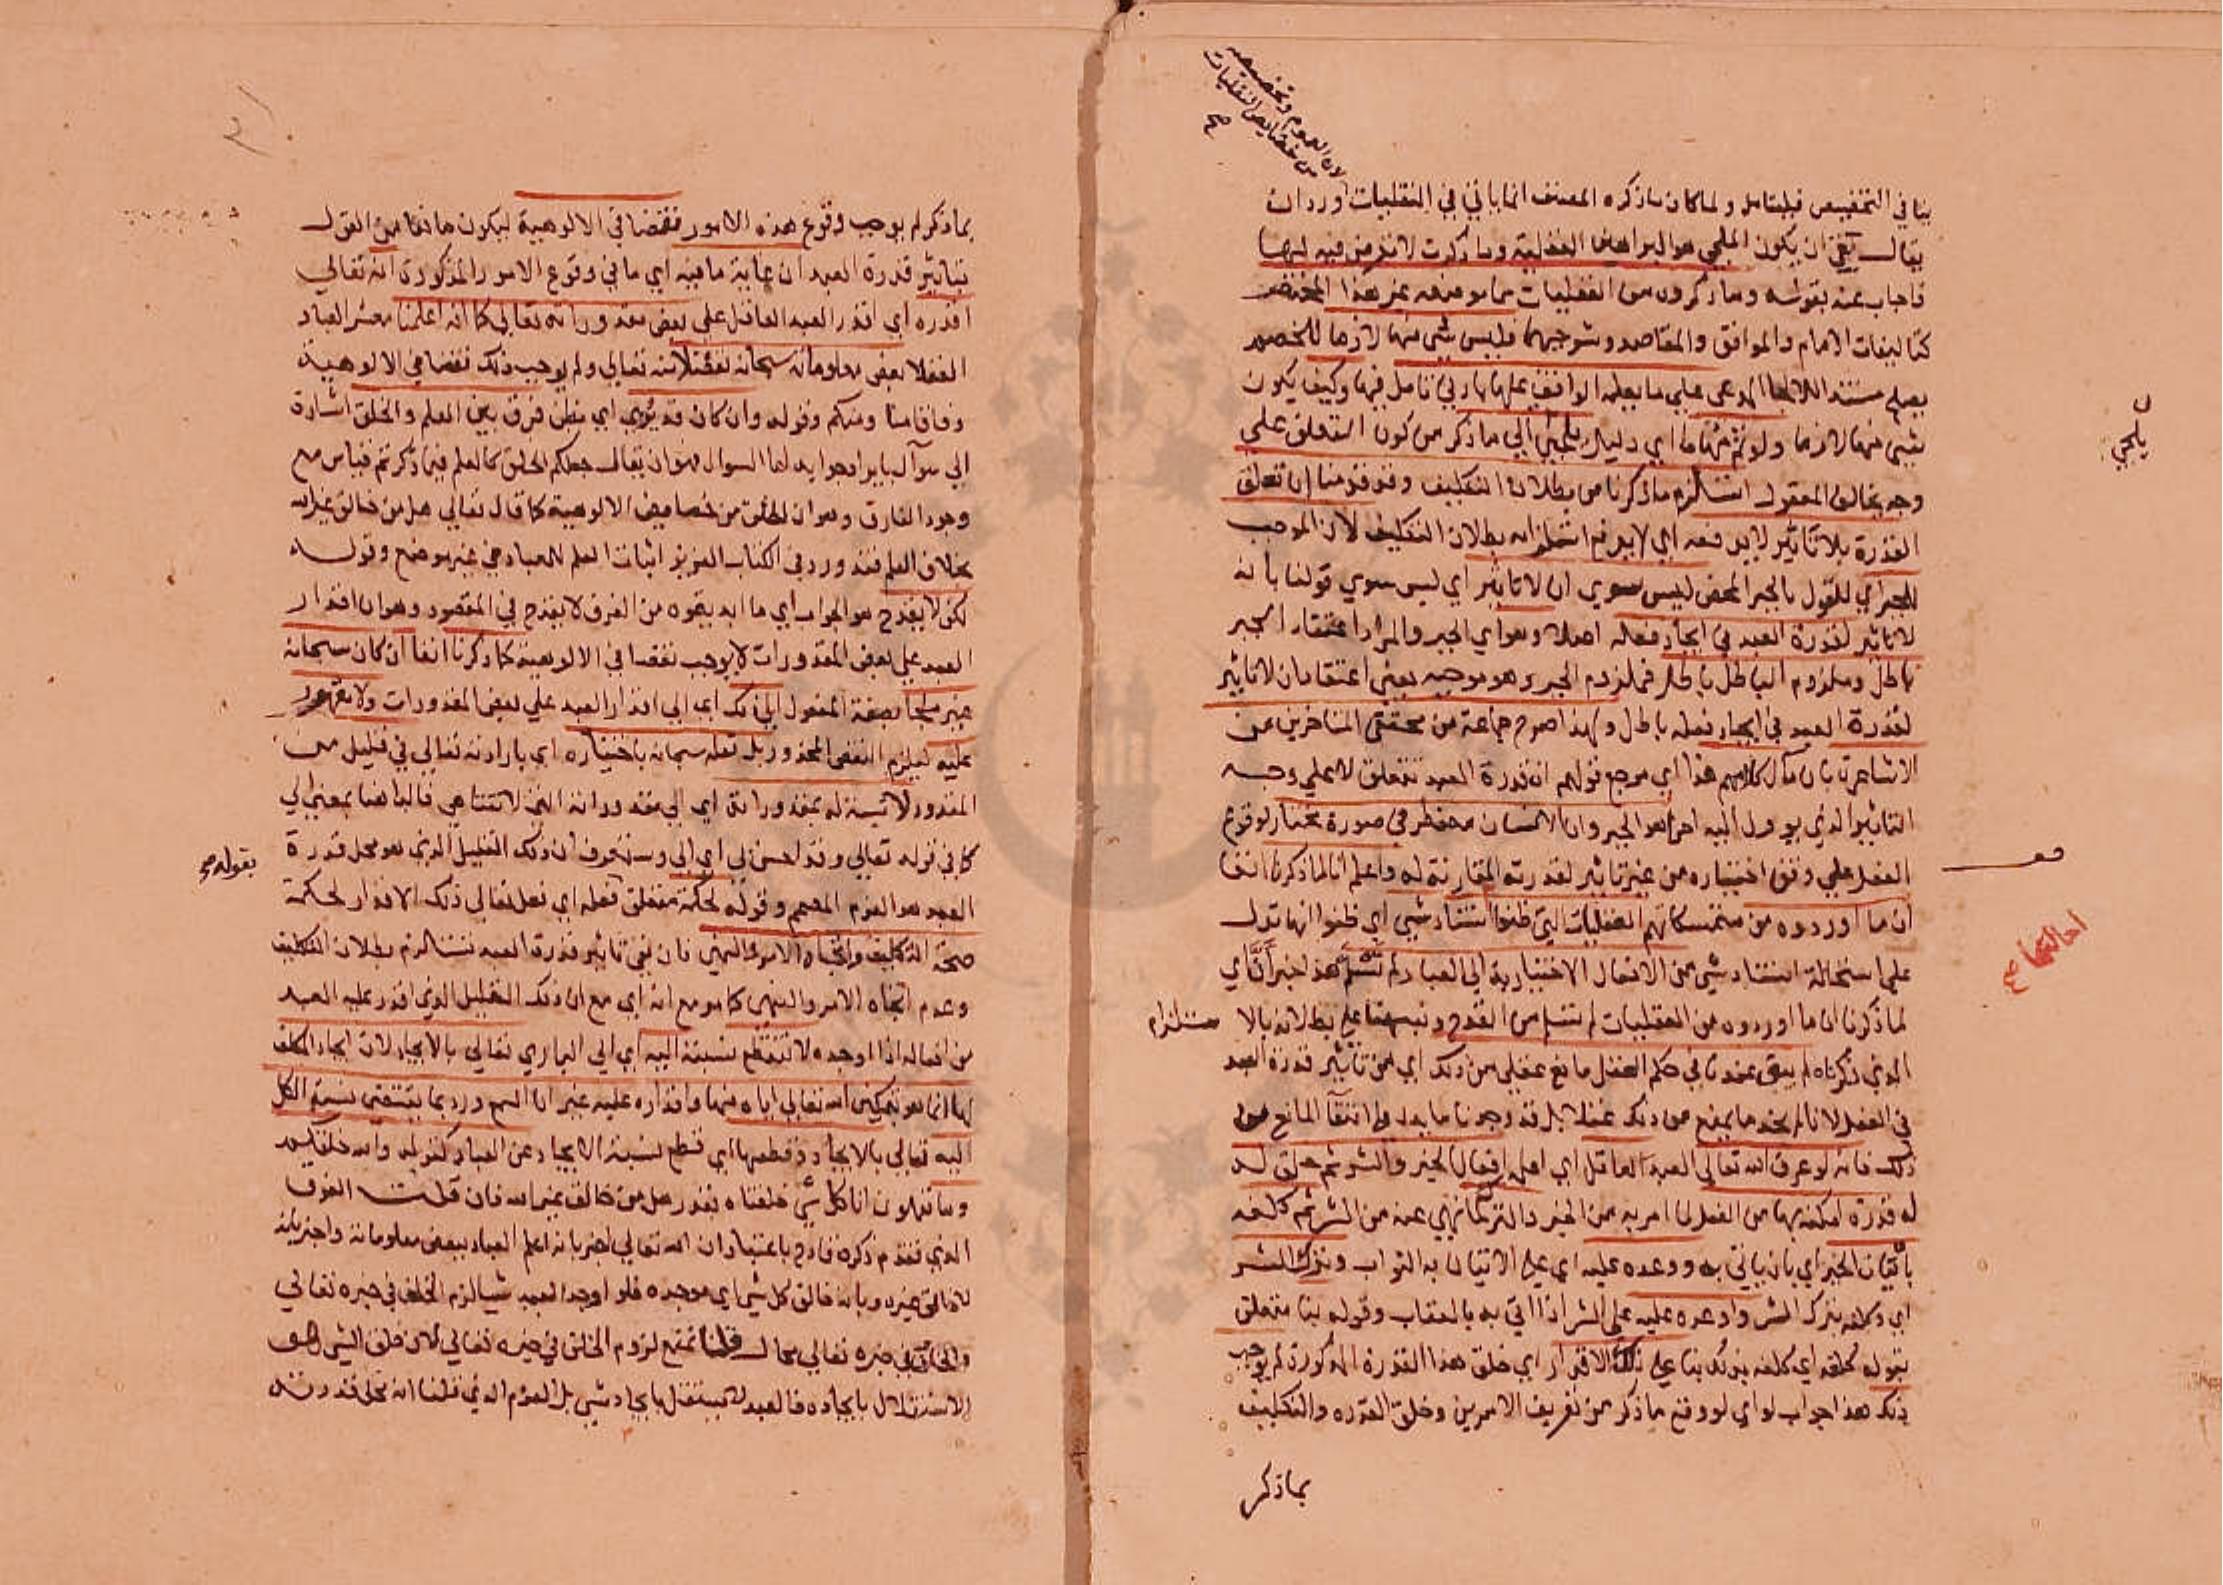 لان العموم وتخصيصه
من خصايص النقليات
صح
ينافي التخصيص فليتامل ولما كان ما ذكره المصنف انما ياتي في النقليات اورد ان
يقال بقي ان يكون الملجي هو البراهين العقلية وما ذكرت لا تعرض فيه لها
فاجاب عنه بقوله وما ذكروه من العقليات مما موضعه غير هذا المختصر
كتاليفات الامام والمواقف والمقاصد وشروحها فليس شي منها لازما للخصم
يصلح مستندا لالجا المدعي علي ما يعلمه الواقف عليها بادني تامل فيها وكيف يكون
شي منها لازما ولو تم منها ما اي دليل يلجي الي ما ذكر من كون التعلق علي
وجه يخالف المعقول استلزم ما ذكرنا من بطلان التكليف وقد قدمنا ان تعلق
القدرة بلا تاثير لا يدفعه اي لا يدفع استلزام بطلان التكليف لان الموجب
للجبر اي للقول بالجبر المحض ليس سوي ان لا تاثير اي ليس سوي قولنا بانه
لا تاثير لقدرة العبد في ايجاد فعله اصلا وهو اي الجبر والمراد اعتقاد الجبر
باطل وملزوم الباطل باطل فملزوم الجبر وهو موجبه يعني اعتقاد ان لا تاثير
لقدرة العبد في ايجاد فعله باطل ولهذا صرح جماعة من محققي المتاخرين من
الاشاعرة بان مآل كلامهم هذا اي مرجع قولهم ان قدرة العبد تتعلق لا علي وجه
التاثير الذي يوول اليه اخرا هو الجبر وان الانسان مضطر في صورة مختار لوقوع
الفعل علي وفق اختياره من غير تاثير لقدرته المقارنة له واعلم انا لما ذكرنا انفا
ان ما اوردوه من متمسكاتهم العقليات التي ظنوا استناد شي اي ظنوا انها تدل
علي استحالة استناد شي من الافعال الاختيارية الي العباد لم تسلم هذا خبر ان اي
لما ذكرنا ان ما اوردوه من العقليات لم تسلم من القدح ونبهنا علي بطلانه بالا ستلزام
الذي ذكرناه لم يبق عندنا في حكم العقل مانع عقلي من ذلك اي من تاثير قدرة العبد
في الفعل لانا لم نجد ما يمنع من ذلك عقلا بل قد وجدنا ما يدل علي انتفآ المانع من
ذلك فانه لو عرف الله تعالي العبد العاقل اي اعلمه افعال الخير والشر ثم خلق له
له قدرة امكنه بها من الفعل لما امر به من الخير والترك لما نهي عنه من الشر ثم كلفه
باتيان الخير اي بان ياتي به ووعده عليه اي علي الاتيان به الثواب وبترك الشر
اي وكلفه بترك الشر واوعده عليه علي الشر اذا اتي به بالعقاب وقوله بنا متعلق
بقوله كلفه اي كلفه بذلك بنا علي ذلك الاقدار اي خلق هذه القدرة المذكورة لم يوجب
ذلك هذا جواب لو اي لو وقع ما ذكر من تعريف الامرين وخلق القدره والتكليف
بما ذكر
يلجي
احالتها صح
بما ذكر لم يوجب وقوع هذه الامور نقصا في الالوهية ليكون مانعا من القول
بتاثير قدرة العبد ان غاية ما فيه اي ما في وقوع الامور المذكورة انه تعالي
اقدره اي اقدر العبد العاقل علي بعض مقدوراته تعالي كما انه اعلمنا معشر العباد
العقلا بعض معلوماته سبحانه تفضلا منه تعالي ولم يوجب ذلك نقصا في الالوهية
وفاقا منا ومنكم وقوله وان كان قد يري اي يظن فرق بين العلم والخلق اشارة
الي سوآل بايراد جوابه اما السوال فهو ان يقال جعلكم الخلق كالعلم فيما ذكرتم قياس مع
وجود الفارق وهو ان الخلق من خصايص الالوهية كما قال تعالي هل من خالق غير الله
بخلاف العلم فقد ورد في الكتاب العزيز اثبات العلم للعباد في غير موضع وقوله
لكن لا يقدح هو الجواب اي ما ابديتموه من الفرق لا يقدح في المقصود وهو ان اقدار
العبد علي بعض المقدورات لا يوجب نقصا في الالوهية كما ذكرنا انفا اذ كان سبحانه
غير ملجا بصيغة المفعول الي ذلك اي الي اقدار العبد علي بعض المقدورات ولا مقهور
عليه ليلزم النقص المحذور بل فعله سبحانه باختياره اي بارادته تعالي في قليل من
المقدور لا نسبة له بمقدوراته اي الي مقدوراته التي لا تتناهي فالبا هنا بمعني الي
كما في قوله تعالي وقد احسن بي اي الي وستعرف ان ذلك القليل الذي هو محل قدرة
بقوله صح
العبد هو العزم المصمم وقوله لحكمة متعلق بفعله اي فعل تعالي ذلك الاقدار لحكمة
صحة التكليف واتجاه الامر والنهي فان نفي تاثير قدرة العبد تستلزم بطلان التكليف
وعدم اتجاه الامر والنهي كما مر مع انه اي مع ان ذلك القليل الذي اقدر عليه العبد
من افعاله اذا اوجده لا تنقطع نسبته اليه اي الي الباري تعالي بالايجاد لان ايجاد المكلف
لها انما هو بتمكين الله تعالي اياه منها واقداره عليه غير ان السمع ورد بما يقتضي نسبة الكل
اليه تعالي بالايجاد وقطعها اي قطع نسبة الايجاد عن العباد كقوله والله خلقكم
وما تعملون انا كل شي خلقناه بقدر هل من خالق غير الله فان قلت الفرق
الذي تقدم ذكره قادح باعتبار ان الله تعالي اخبر بانه اعلم العباد ببعض معلوماته واخبر بانه
لا خالق غيره وبانه خالق كل شي اي موجده فلو اوجد العبد شيا لزم الخلف في خبره تعالي
والخلف في خبره تعالي محال قلنا نمنع لزوم الخلف في خبره تعالي لان خلق الشي هو
الاستقلال بايجاده فالعبد لا يستقل بايجاد شي بل العزم الذي قلنا انه محل قدرته